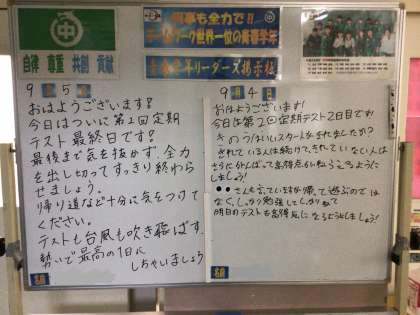 何事も全力で!!
チームワーク世界一位の青春学年
中
自律 尊重 共創 貢献
学年リーダーズ掲示板
9 5
おはようございます!
今日はついに第2回定期
テスト最終日です!
最後まで気を抜かず、全力
を出し切ってすっきり終わら
せましょう。
帰り道など十分に気をつけて
ください。
テストも台風も吹き飛ばす
勢いで最高の1日に
しちゃいましょう
9 4 日
おはようございます!
今日は第2回定期テスト2日目です!
きのうはいいスタートをきれましたか?
きれている人は続けて、きれていない人は
さらにがんばって高得点
しましょう!
さんも言っていますが帰って遊ぶのでは
なく、しっかり勉強して
明日のテストも高得点になるようにしましょう!